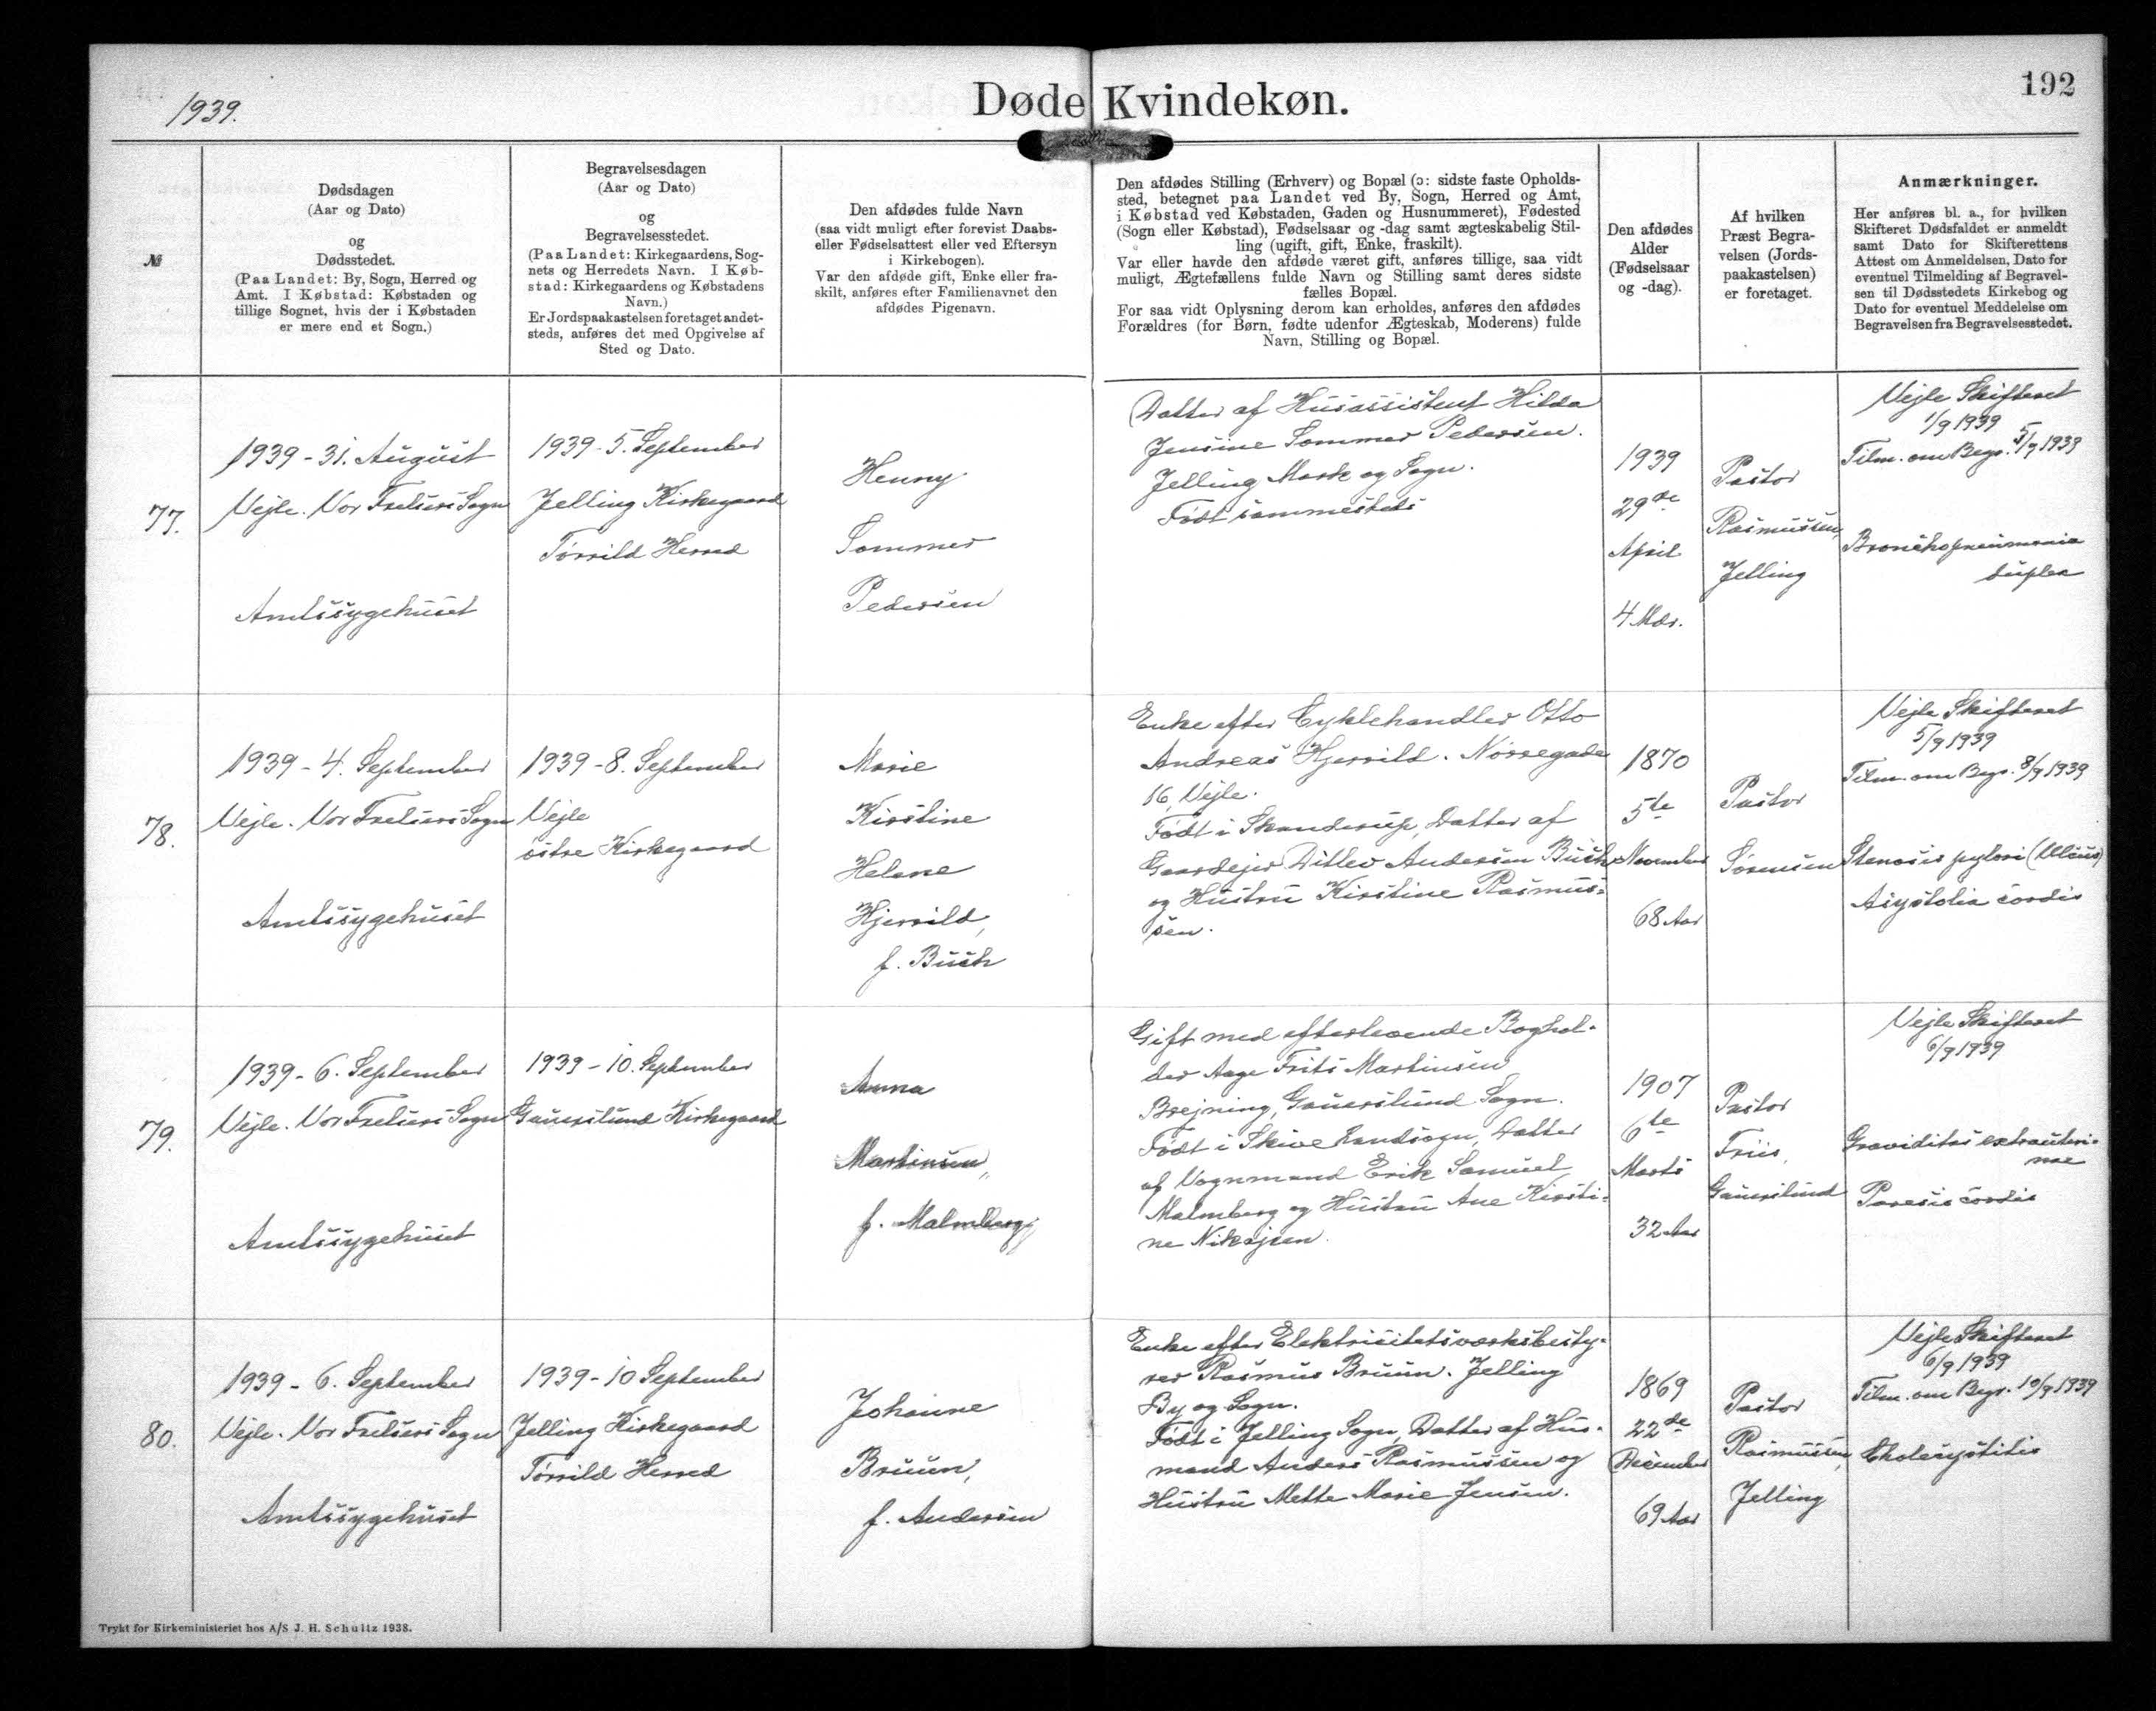 1939.
Døde Kvindekøn.
192
№
Dødsdagen
(Aar og Dato)
og
Dødsstedet.
(Paa Landet: By, Sogn, Herred og
Amt. I Købstad: Købstaden og
tillige Sognet, hvis der i Købstaden
er mere end et Sogn.)
Begravelsesdagen
(Aar og Dato)
og
Begravelsesstedet.
(Paa Landet: Kirkegaardens, Sog-
nets og Herredets Navn. I Køb-
stad: Kirkegaardens og Købstadens
Navn.)
Er Jordspaakastelsen foretaget andet-
steds, anføres det med Opgivelse af
Sted og Dato.
Den afdødes fulde Navn
(saa vidt muligt efter forevist Daabs-
eller Fødselsattest eller ved Eftersyn
i Kirkebogen).
Var den afdøde gift, Enke eller fra-
skilt, anføres efter Familienavnet den
afdødes Pigenavn.
Den afdødes Stilling (Erhverv) og Bopæl (ɔ: sidste faste Opholds-
sted, betegnet paa Landet ved By, Sogn, Herred og Amt,
i Købstad ved Købstaden, Gaden og Husnummeret), Fødested
(Sogn eller Købstad), Fødselsaar og -dag samt ægteskabelig Stil-
ling (ugift, gift, Enke, fraskilt).
Var eller havde den afdøde været gift, anføres tillige, saa vidt
muligt, Ægtefællens fulde Navn og Stilling samt deres sidste
fælles Bopæl.
For saa vidt Oplysning derom kan erholdes, anføres den afdødes
Forældres (for Børn, fødte udenfor Ægteskab, Moderens) fulde
Navn, Stilling og Bopæl.
Den afdødes
Alder
(Fødselsaar
og -dag).
Af hvilken
Præst Begra-
velsen (Jords-
paakastelsen)
er foretaget.
Anmærkninger.
Her anføres bl. a., for hvilken
Skifteret Dødsfaldet er anmeldt
samt Dato for Skifterettens
Attest om Anmeldelsen, Dato for
eventuel Tilmelding af Begravel-
sen til Dødsstedets Kirkebog og
Dato for eventuel Meddelelse om
Begravelsen fra Begravelsesstedet.
77.
1939 - 31. August
Vejle. Vor Frelsers Sogn
Amtssygehuset
1939 - 5. September
Jelling Kirkegaard
Tørrild Herred
Henny
Sommer
Pedersen
Datter af Husassistent Hilda
Jensine Sommer Pedersen.
Jelling Mark og Sogn.
Født sammesteds
1939
29de
April
4 Mdr.
Pastor
Rasmussen,
Jelling
Vejle Skifteret
1/9 1939
Tilm. om Begr. 5/9 1939
Bronchopneumonia
duplex
78.
1939 - 4. September
Vejle. Vor Frelsers Sogn
Amtssygehuset
1939 - 8. September
Vejle
østre Kirkegaard
Marie
Kirstine
Helene
Hjerrild,
f. Buch
Enke efter Cyklehandler Otto
Andreas Hjerrild. Nørregade
16, Vejle.
Født i Skanderup, Datter af
Gaardejer Ditlev Andersen Buch
og Hustru Kirstine Rasmus-
sen.
1870
5te
November
68 Aar
Pastor
Sørensen
Vejle Skifteret
5/9 1939
Tilm. om Begr. 8/9 1939
Stenosis pylori (Ulcus)
Asystolia cordis
79.
1939 - 6. September
Vejle. Vor Frelsers Sogn
Amtssygehuset
1939 - 10. September
Gauerslund Kirkegaard
Anna
Martinsen,
f. Malmberg
Gift med efterlevende Boghol-
der Aage Frits Martinsen
Brejning, Gauerslund Sogn.
Født i Skive Landsogn, Datter
af Vognmand Erik Samuel
Malmberg og Hustru Ane Kirsti-
ne Nikajsen.
1907
6te
Marts
32 Aar
Pastor
Friis,
Gauerslund
Vejle Skifteret
6/9 1939
Graviditas extrauteri-
nae
Paresis cordis
80.
1939 - 6. September
Vejle. Vor Frelsers Sogn
Amtssygehuset
1939 - 10 September
Jelling Kirkegaard
Tørrild Herred
Johanne
Bruun,
f. Andersen
Enke efter Elektricitetsværksbesty-
rer Rasmus Bruun. Jelling
By og Sogn.
Født i Jelling Sogn, Datter af Hus-
mand Anders Rasmussen og
Hustru Mette Marie Jensen.
1869
22de
December
69 Aar
Pastor
Rasmussen,
Jelling
Vejle Skifteret
6/9 1939
Tilm. om Begr. 10/9 1939
Cholecystitis
Trykt for Kirkeministeriet hos A/S J. H. Schultz 1938.